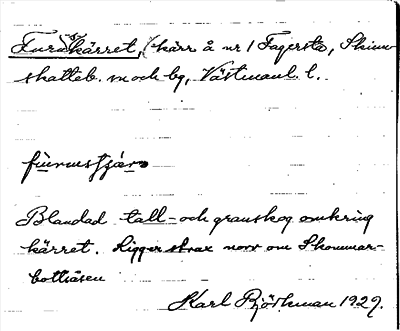 Furuskärret, kärr å nr 1 Fagersta, Skinn-
skatteb. sn och bg, Västmanl. l.
Blandad tall- och granskog omkring
kärret. Ligger strax norr om Skommar-
bottåsen
Karl Björkman 1929.